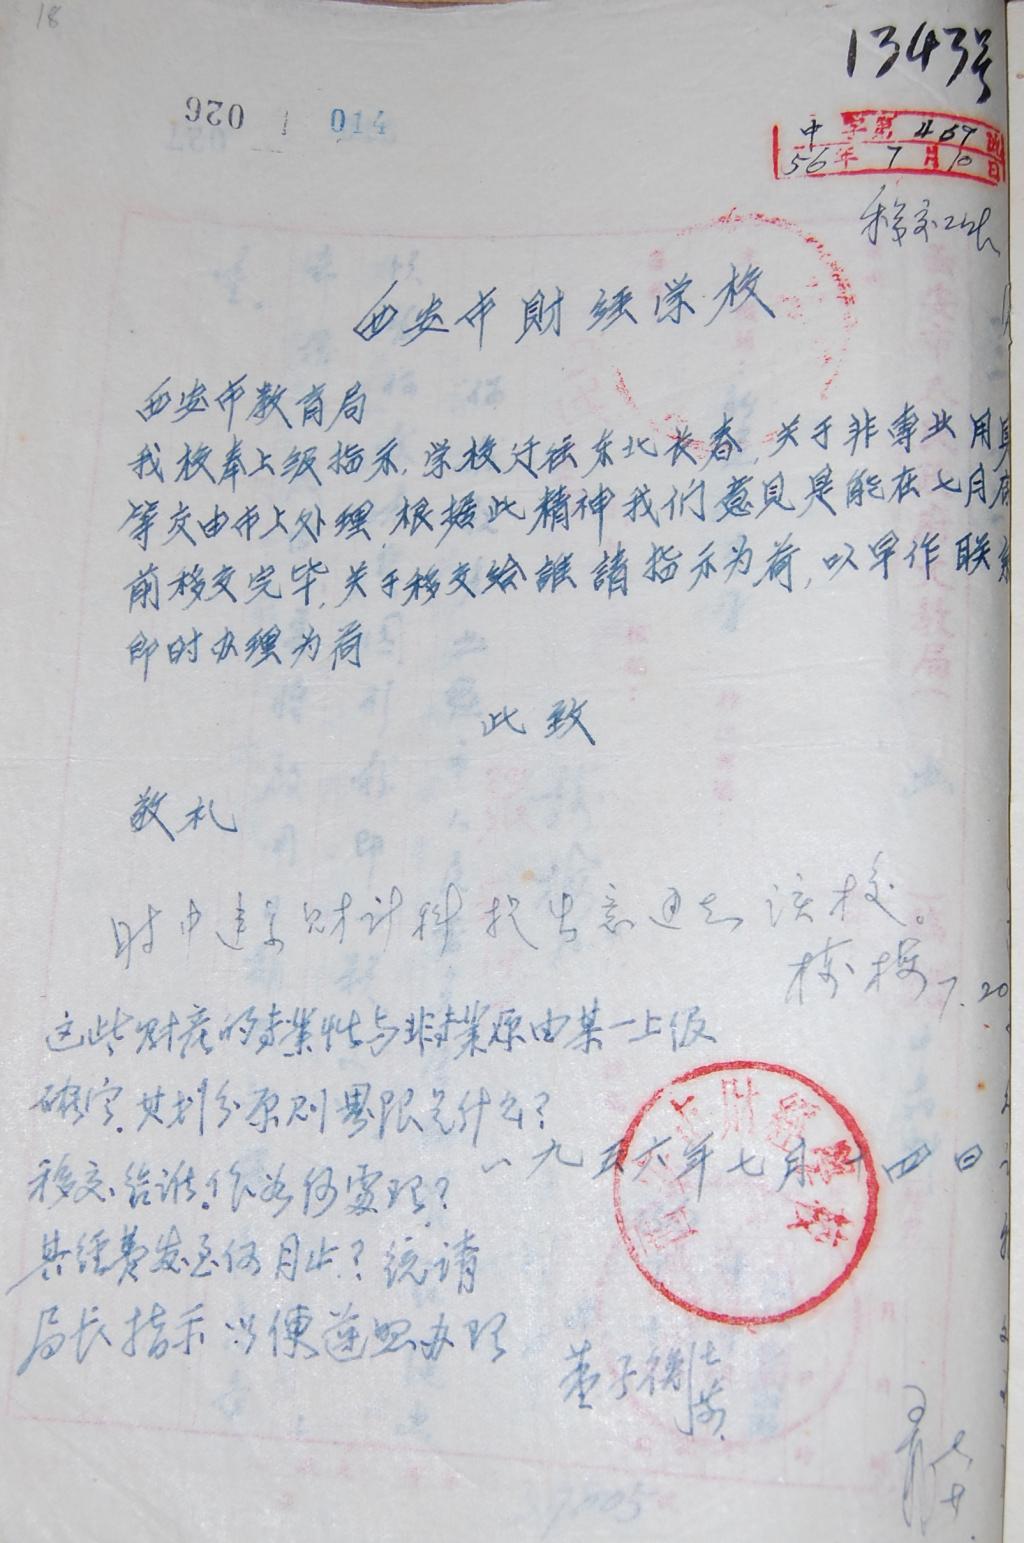 18
1343号
026 1 014
中字第 467 号
56年 7月10日
西安市財経学校
西安市教育局
我校奉上级指示,学校迁往东北长春,关于非专业用具
等交由市上处理,根据此精神我们意见是能在七月底
前移交完毕,关于移交给誰請指示为荷,以早作联系
即时办理为荷
此致
敬礼
财计科提出意见 该校。
7.20
这些财产的专業性与非专業原由某一上级
确定,其划分原则界限是什么?
一九五六年七月十四日
移交给谁。作为何處理?
其经费发至何月止?统请
局长指示以便遵照办理
董子衡